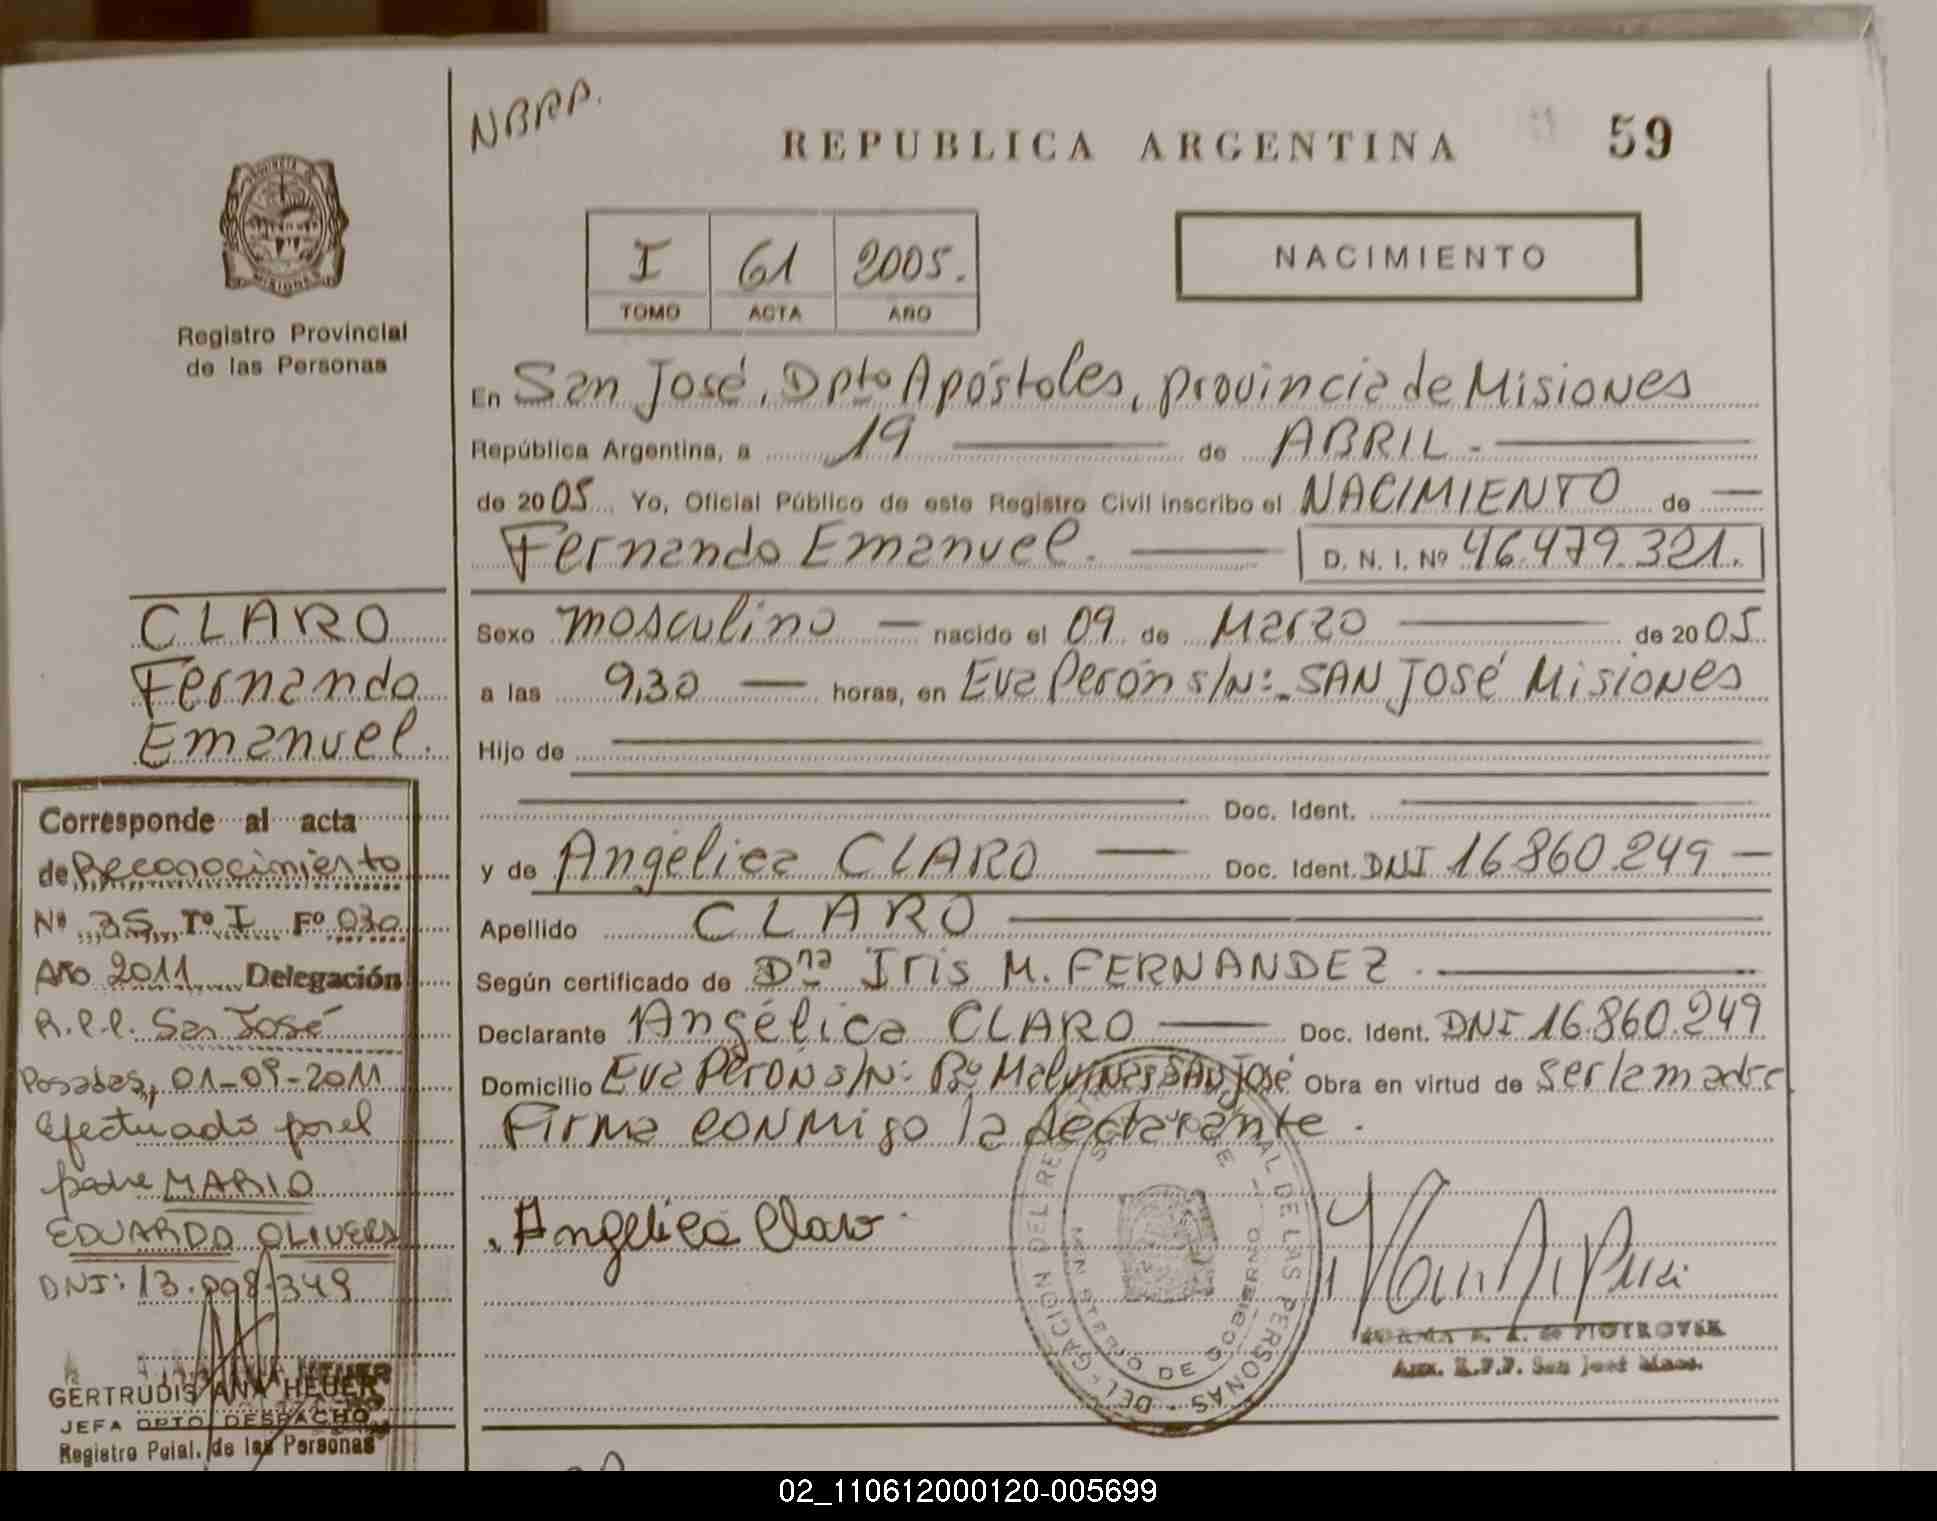 NBRP.
REPUBLICA ARGENTINA 59
I 61 2005.
TOMO ACTA AÑO
NACIMIENTO
Registro Provincial
de las Personas
En San José, Dpto Apóstoles, provincia de Misiones
República Argentina, a 19 de ABRIL.-
de 2005 Yo, Oficial Público de este Registro Civil inscribo el NACIMIENTO de
Fernando Emanuel. D. N. I. Nº 46.479.321.
Sexo masculino nacido el 09 de Marzo de 2005
a las 9,30 horas, en Eva Perón s/Nº.- SAN José Misiones
Hijo de
Doc. Ident.
y de Angélica CLARO Doc. Ident. DNI 16.860.249
Apellido CLARO
Según certificado de Dña Iris M. FERNANDEZ
Declarante Angélica CLARO Doc. Ident. DNI 16.860.249
Domicilio Eva Perón s/Nº Bº Malvinas SAN José Obra en virtud de ser la madre
Firma conmigo la declarante.
Angelica Claro
DELEGACION DEL REGISTRO PROVINCIAL DE LAS PERSONAS
MINISTERIO DE GOBIERNO
NORMA A. de PIOTROVSK
Aux. R.P.P. San José Mnes.
CLARO
Fernando
Emanuel.
Corresponde al acta
de Reconocimiento
Nº 35 Tº I Fº 030
Año 2011 Delegación
R.P.P. San José
Posadas, 01-09-2011
Efectuado por el
padre MARIO
EDUARDO OLIVERA
DNI: 13.998.349
GERTRUDIS ANA HEUER
JEFA DPTO DESPACHO
Registro Pcial. de las Personas
02_110612000120-005699